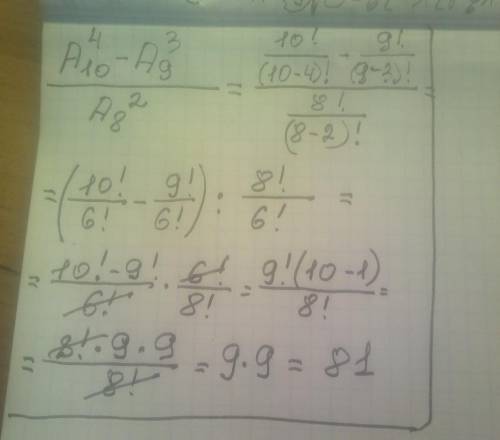 (A₁₀⁴ - A₉³) / A₈² = (10! / (10-4)! - 9! / (9-3)!) / (8! / (8-2)!) =
= (10! / 6! - 9! / 6!) : 8! / 6! =
= (10! - 9!) / 6! · 6! / 8! = 9!(10-1) / 8! =
= 8! · 9 · 9 / 8! = 9 · 9 = 81